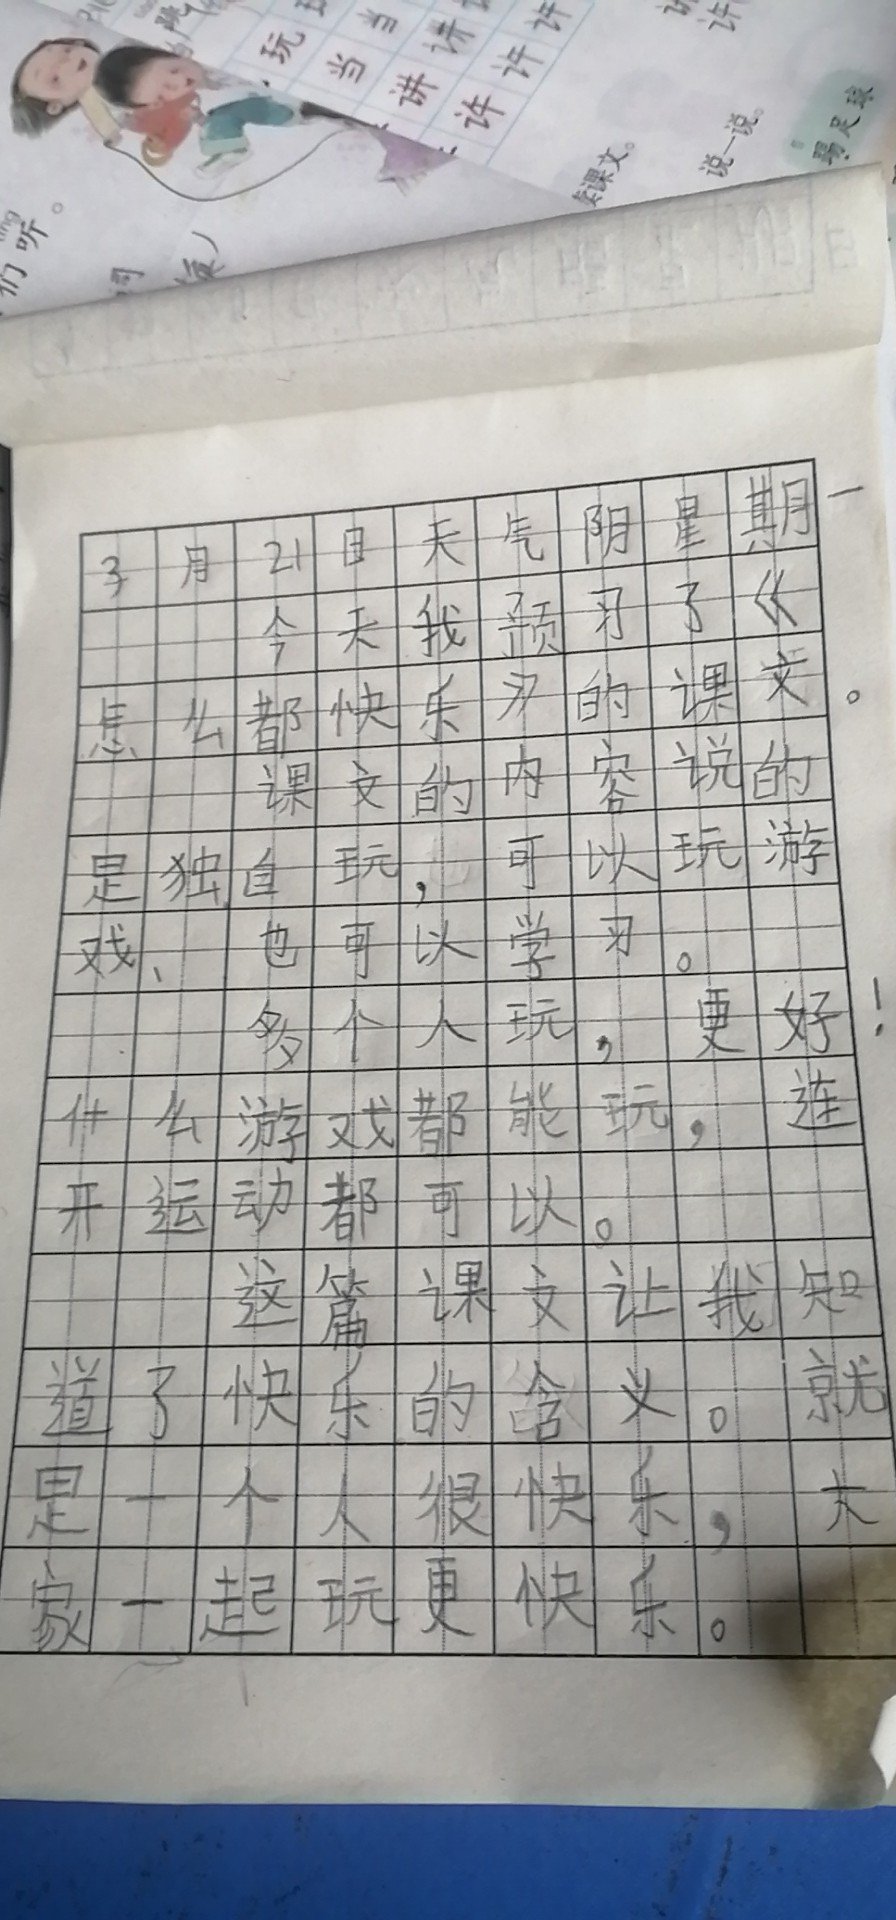 玩
当 当
讲 讲
许 许 许
读课文。
说一说。
踢足球
们听。
3月21日天气阴星期一
今天我预习了《
怎么都快乐》的课文。
课文的内容说的
是独自玩,可以玩游
戏、也可以学习。
多个人玩,更好!
什么游戏都能玩,连
开运动都可以。
这篇课文让我知
道了快乐的含义。就
是一个人很快乐,大
家一起玩更快乐。